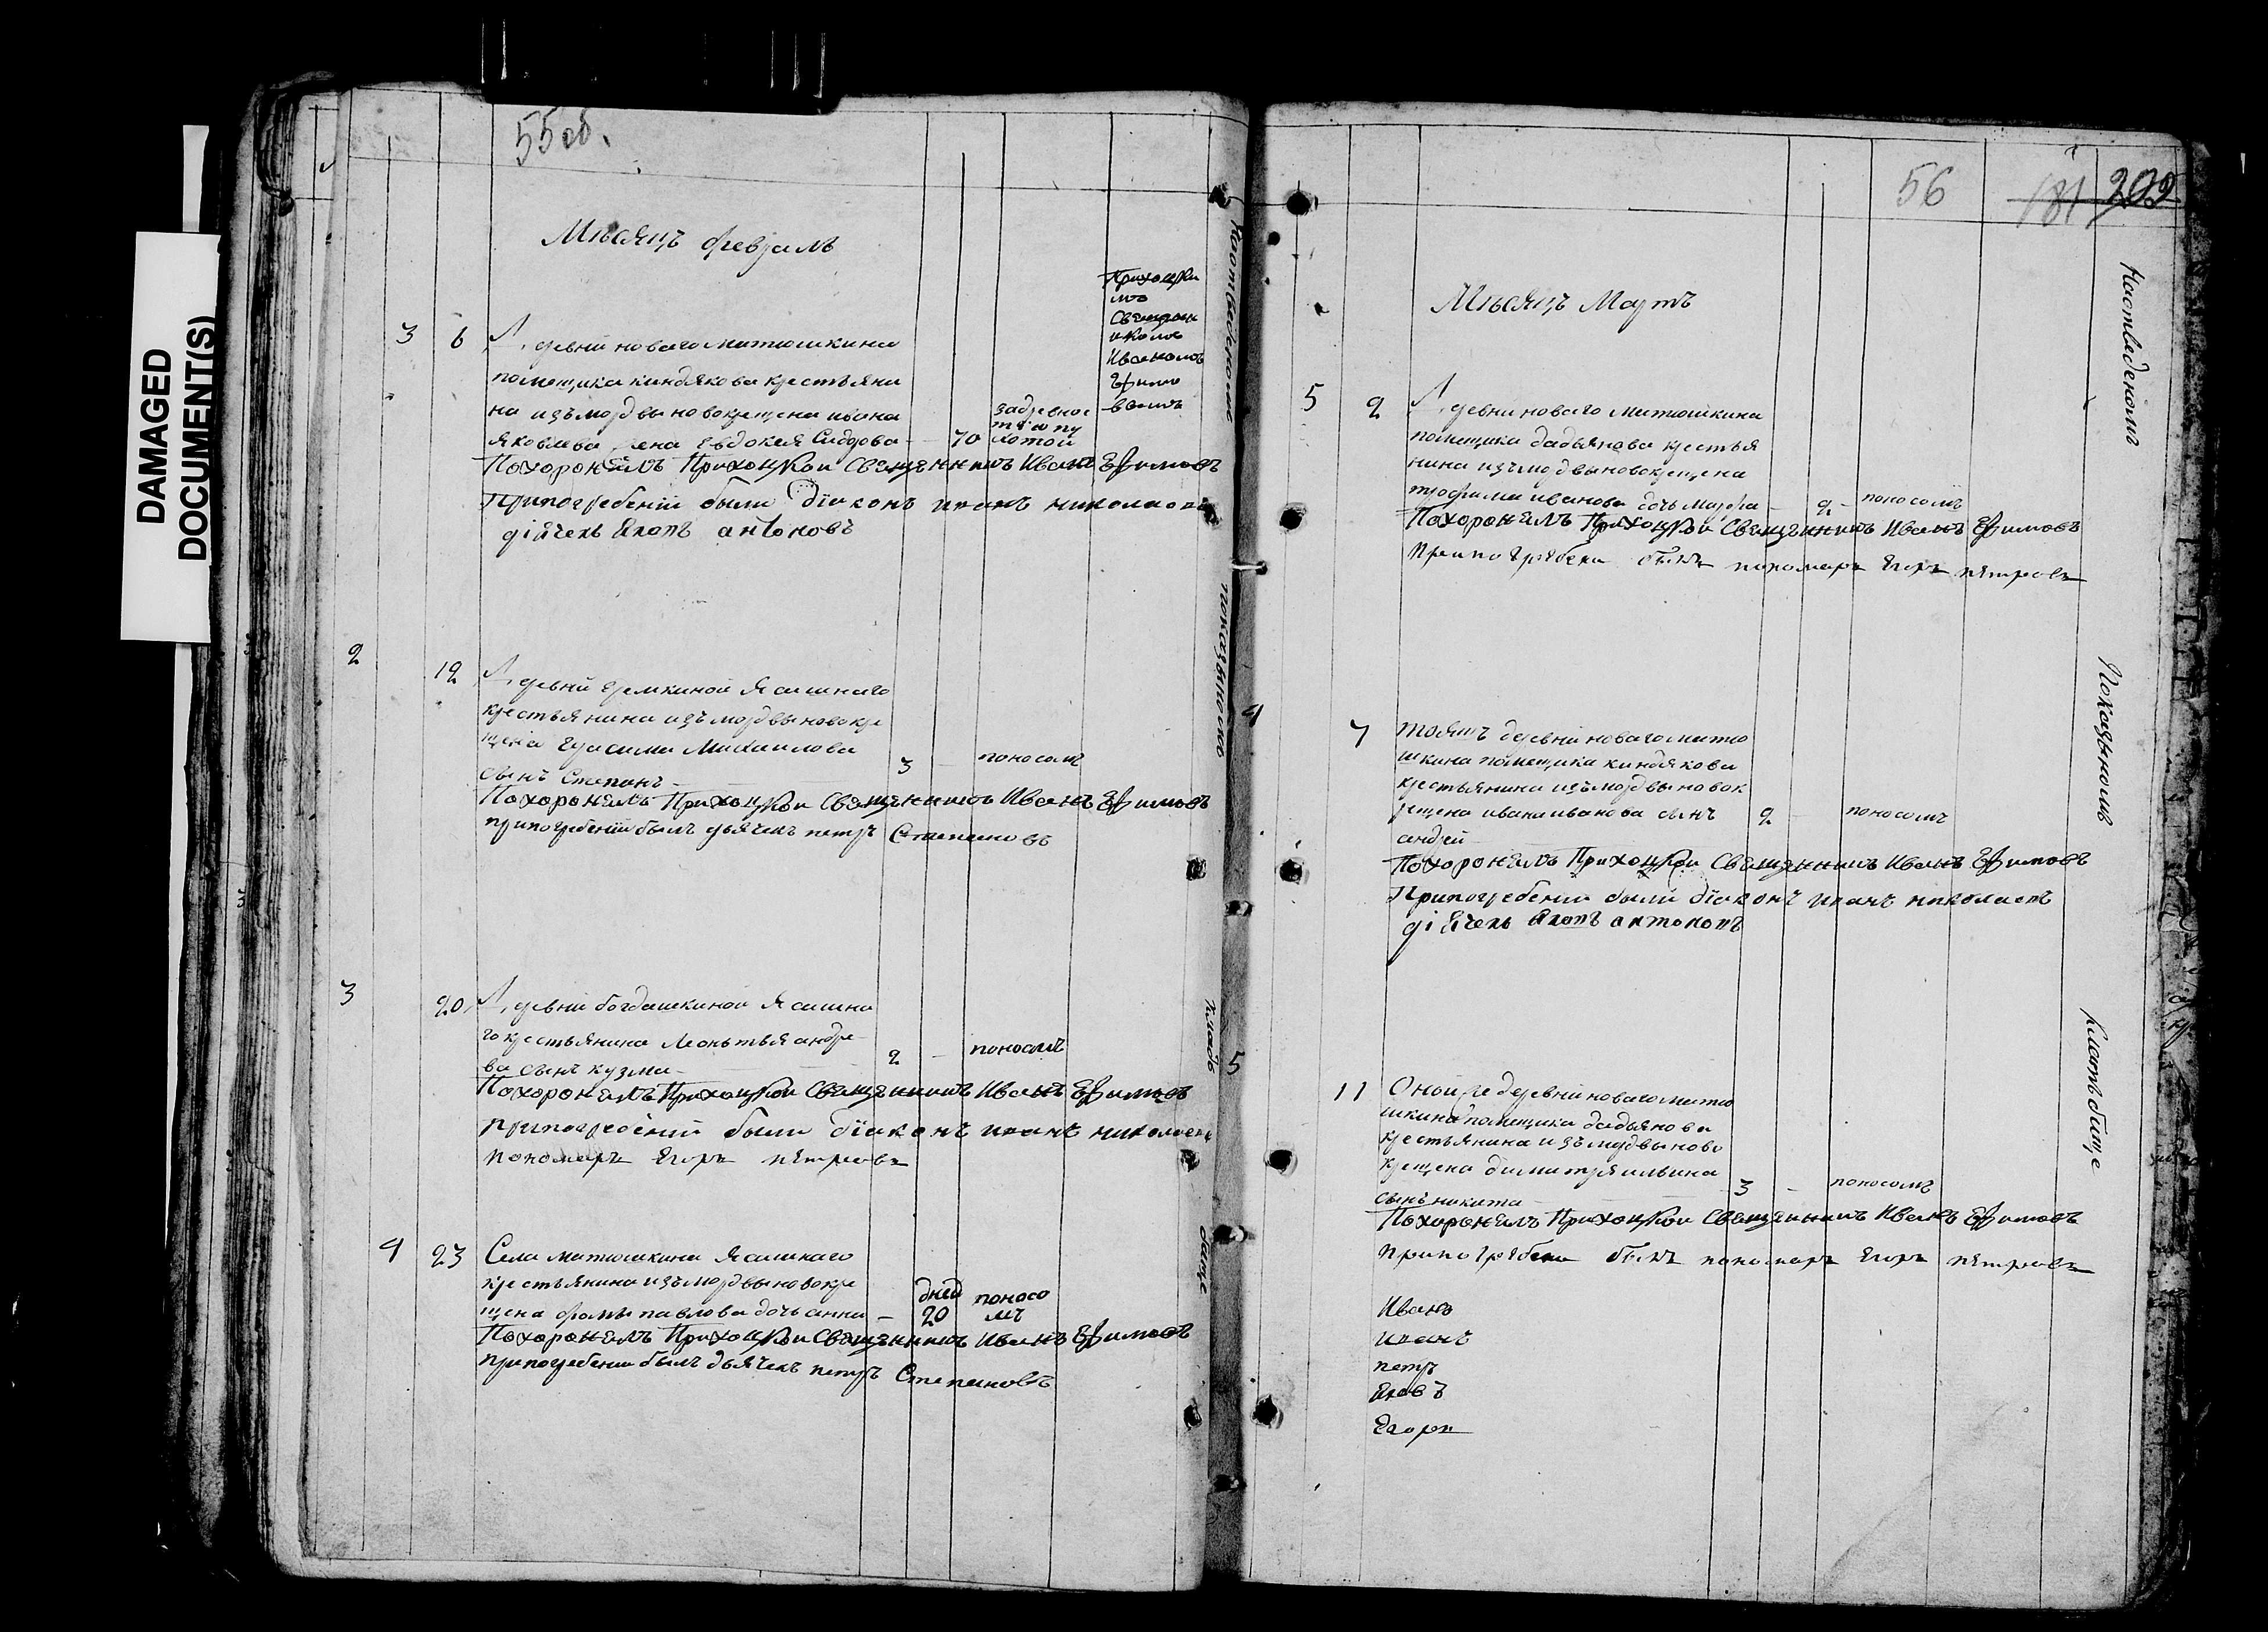 DAMAGED
DOCUMENT(S)
55 об.
Мѣсяцъ февраль
Прихоцки
мъ
Священн
икомъ
Иваномъ
Ефимо
вымъ
3 6 деревни новаго матюшкина
помещика киндякова крестьяни
на изъ мордвы новокрещена ивана
яковлева жена Евдокея Сидорова 70
Похоронилъ Прихоцкои Священникъ Иванъ Ефимовъ
Припогребении были діаконъ иванъ николаевъ
дiячекъ яковъ антоновъ
2 12 деревни еремкиной Ясашнаго
крестьянина изъ мордвы новокре
щена Герасима Михаилова
сынъ Степанъ 3 - поносомъ
Похоронилъ Прихоцкои Священникъ Иванъ Ефимовъ
припогребении былъ дьячекъ петръ Степановъ
3 20 деревни богдашкиной Ясашна
го крестьянина Леонтья андре
ва сынъ кузма 2 - поносомъ
Похоронилъ Прихоцкои Священникъ Иванъ Ефимовъ
припогребении были діаконъ иванъ николаевъ
пономаръ Егоръ пѣтровъ
4 23 Села матюшкина Ясашнаго
крестьянина изъ мордвы новокре
щена фомы павлова дочь анна - дней 20 поносо
мъ
Похоронилъ Прихоцкои Священникъ Иванъ Ефимовъ
припогребении былъ дьячекъ петръ Степановъ
56 181 202
Мѣсяцъ Мартъ
5 2 деревни новаго матюшкина
помещика дадьянова крестья
нина изъ мордвы новокрещена
трофима иванова дочь марфа - 2 - поносомъ
Похоронилъ Прихоцкои Священникъ Иванъ Ефимовъ
припогрѣбени былъ пономаръ Егоръ пѣтровъ
4 7 тояжъ деревни новаго матю
шкина помещика киндякова
крестьянина изъ мордвы новок
рещена ивана иванова сынъ 2 - поносомъ
андрей
Похоронилъ Прихоцкои Священникъ Иванъ Ефимовъ
Припогребении были діаконъ иванъ николаевъ
дiячекъ яковъ антоновъ
5 11 Оной же деревни новаго матю
шкина помещика дадьянова
крестьянина изъ мордвы ново
крещена димитрея ильина
сынъ никита 3 - поносомъ
Похоронилъ Прихоцкои Священникъ Иванъ Ефимовъ
припогрѣбени былъ пономаръ Егоръ пѣтровъ
Иванъ
иванъ
петръ
яковъ
Егоръ
Покаяномъ
кладъбище